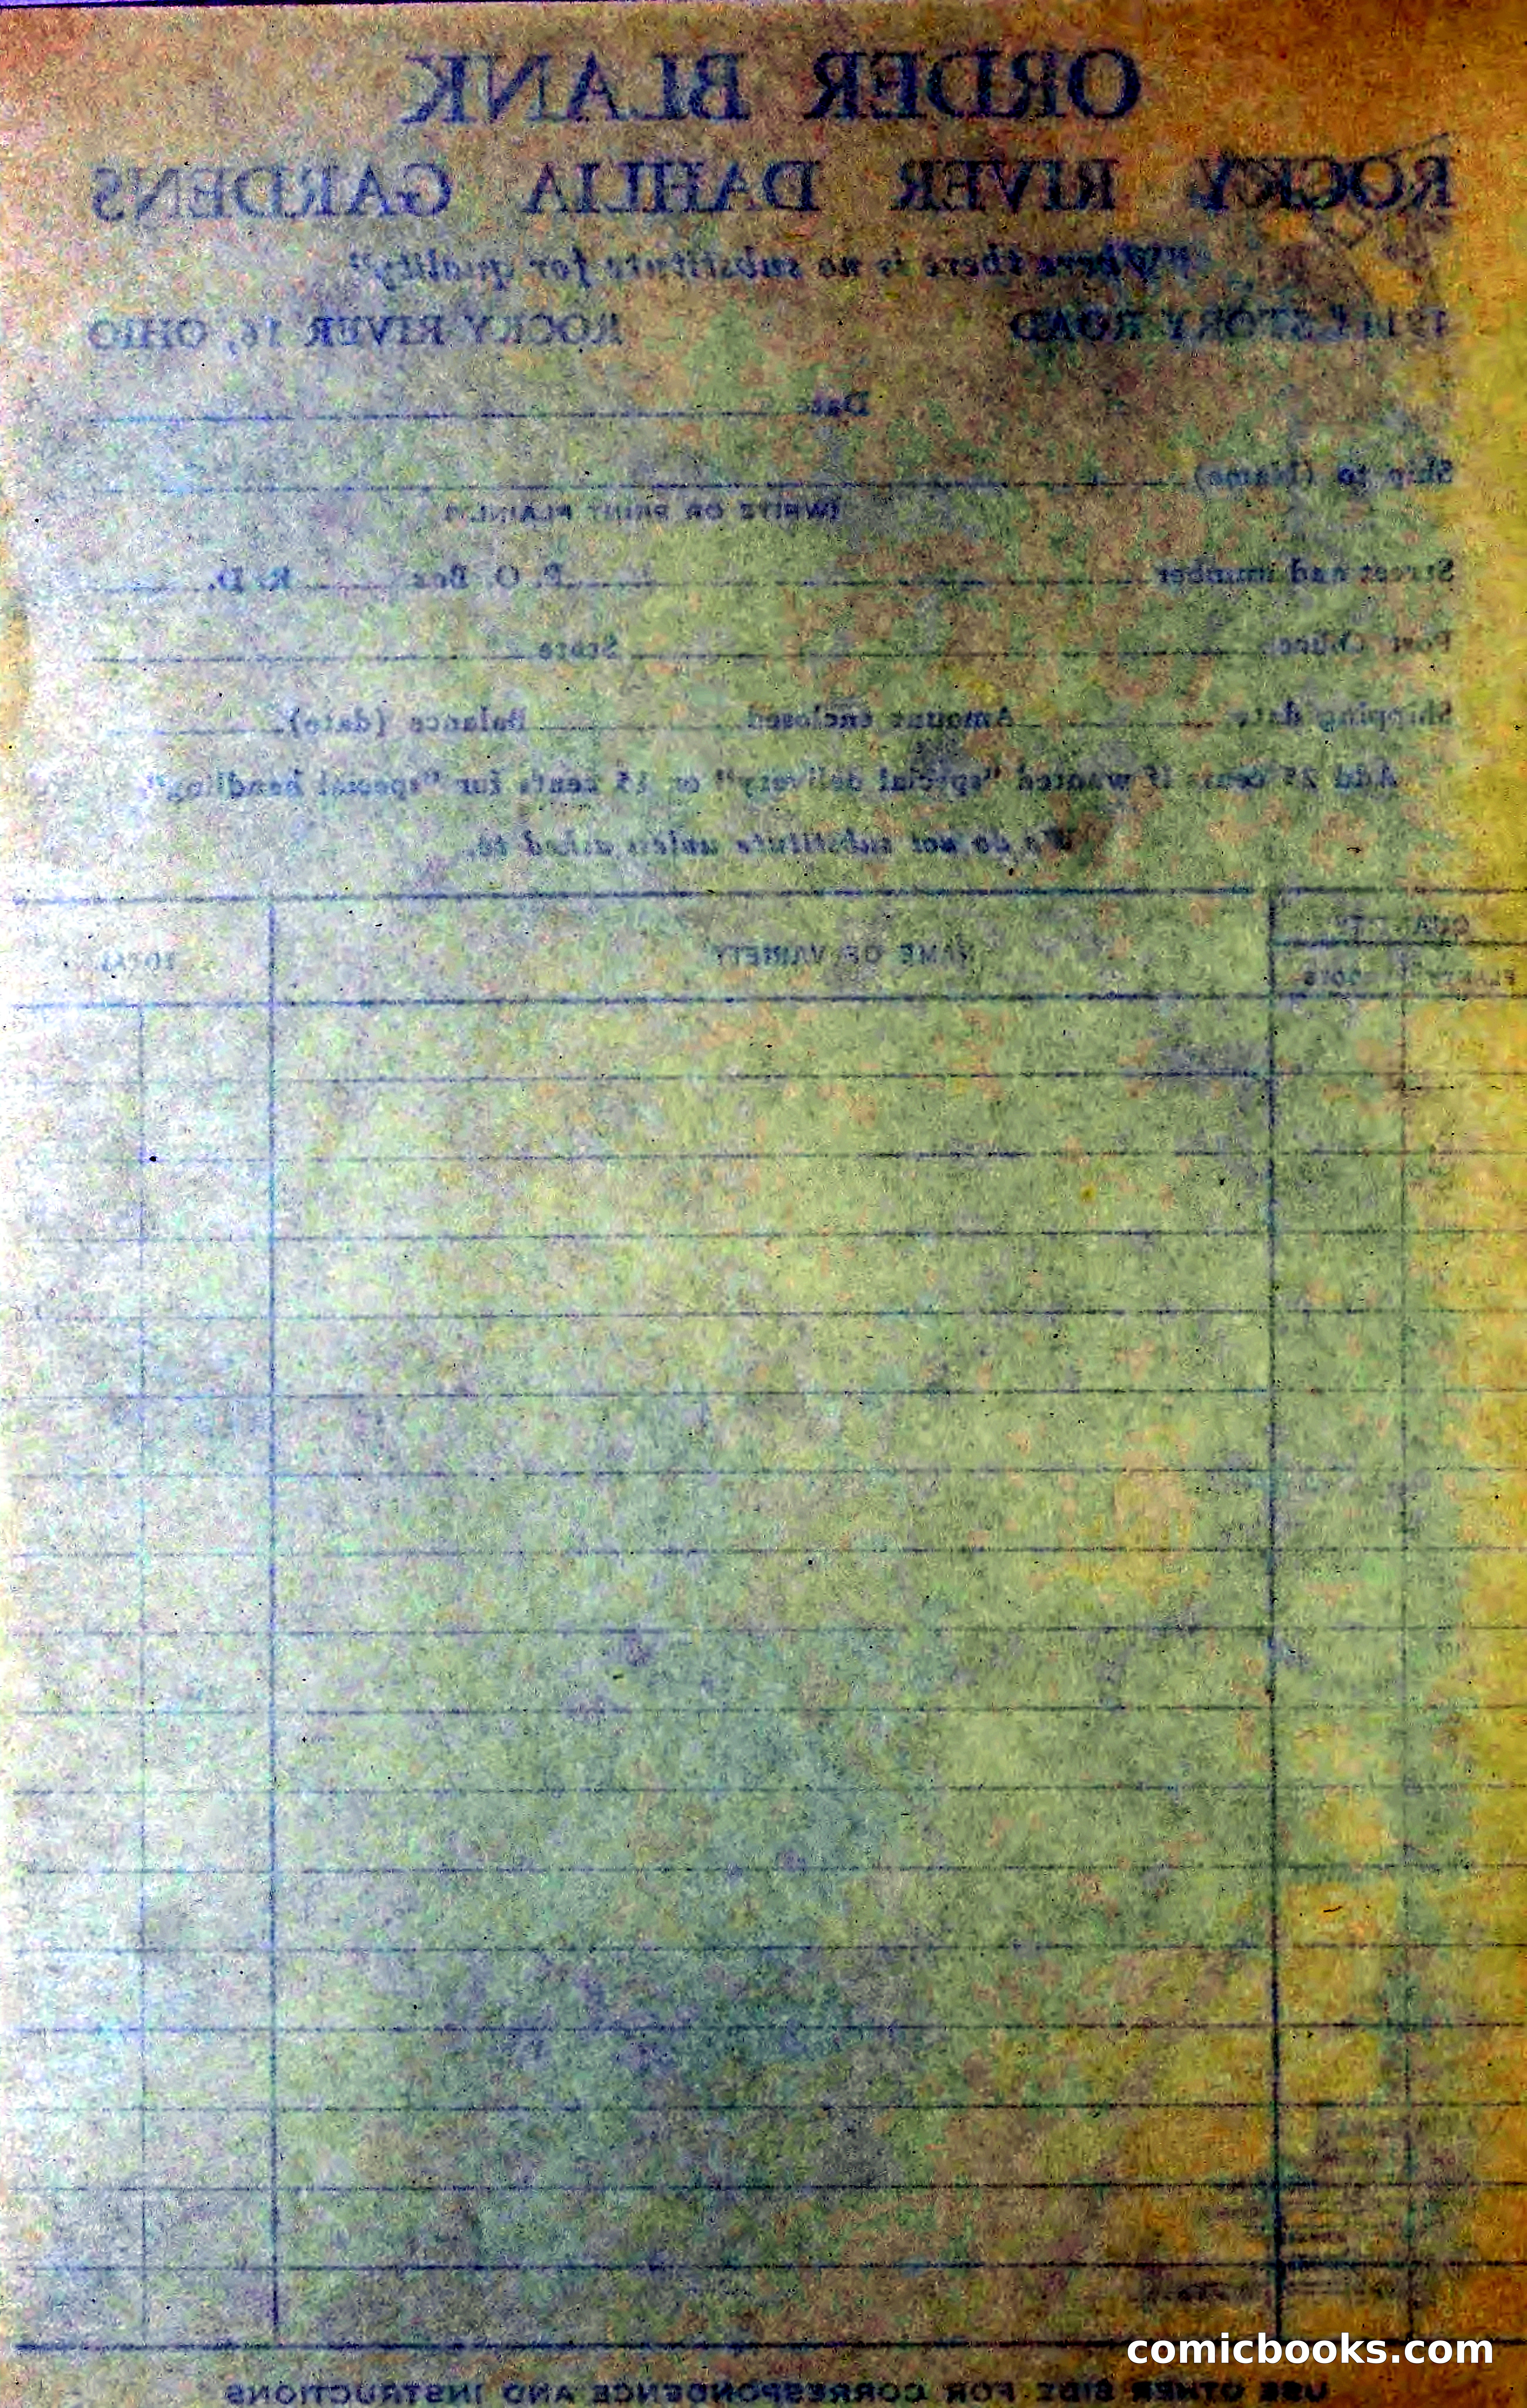 ORDER BLANK
ROCKY RIVER DAHLIA GARDENS
"Where there is no substitute for quality"
STORY ROAD ROCKY RIVER 16, OHIO
Date
Ship to (Name)
(WRITE OR PRINT PLAINLY)
Street and number P. O. Box R. D.
Post Office State
Shipping date Amount enclosed Balance (date)
Add 25 cents if wanted "special delivery" or 15 cents for "special handling".
We do not substitute unless asked to.
QUANTITY NAME OF VARIETY TOTAL
PLANTS ROOTS
USE OTHER SIDE FOR CORRESPONDENCE AND INSTRUCTIONS
comicbooks.com